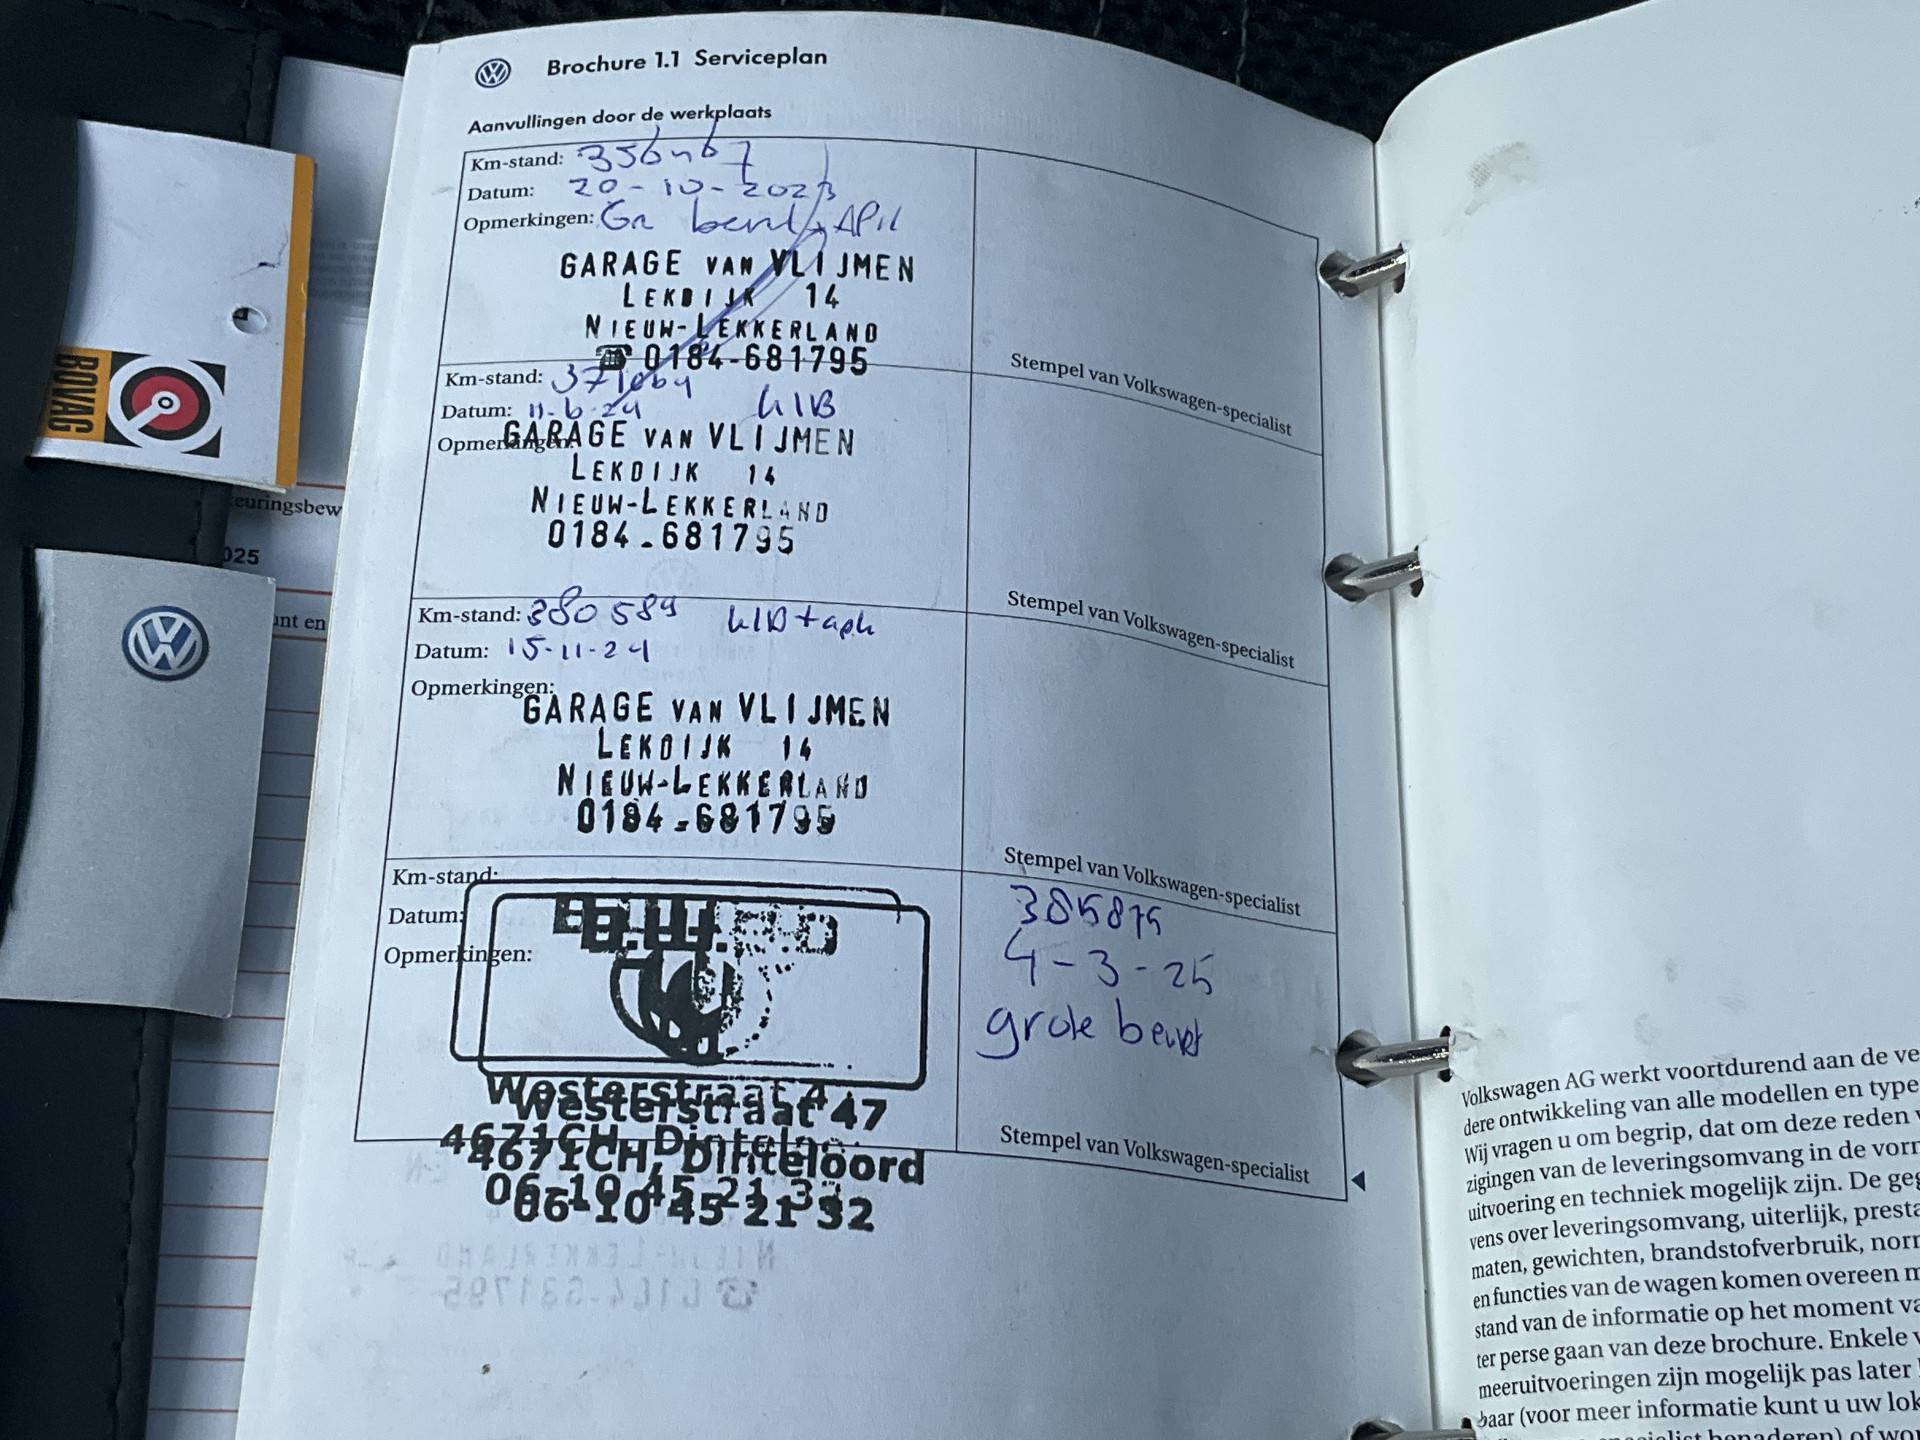 Brochure 1.1 Serviceplan
Aanvullingen door de werkplaats
Km-stand: 356467
Datum: 20-10-2023
Opmerkingen: Gr beurt + APK
GARAGE VAN VLIJMEN
LEKDIJK 14
NIEUW-LEKKERLAND
☎ 0184-681795
Stempel van Volkswagen-specialist
Km-stand: 371064
Datum: 11-6-24 klB
Opmerkingen:
GARAGE VAN VLIJMEN
LEKDIJK 14
NIEUW-LEKKERLAND
0184-681795
Stempel van Volkswagen-specialist
Km-stand: 380589 klB + apk
Datum: 15-11-24
Opmerkingen:
GARAGE VAN VLIJMEN
LEKDIJK 14
NIEUW-LEKKERLAND
0184-681795
Stempel van Volkswagen-specialist
Km-stand:
Datum:
Opmerkingen:
385875
4-3-25
grote beurt
Westerstraat 47
4671CH, Dinteloord
06-10 45 21 32
Stempel van Volkswagen-specialist
BOVAG
keuringsbew
025
unt en
Volkswagen AG werkt voortdurend aan de ve
dere ontwikkeling van alle modellen en type
Wij vragen u om begrip, dat om deze reden
zigingen van de leveringsomvang in de vorm
uitvoering en techniek mogelijk zijn. De geg
vens over leveringsomvang, uiterlijk, presta
maten, gewichten, brandstofverbruik, norm
en functies van de wagen komen overeen m
stand van de informatie op het moment va
ter perse gaan van deze brochure. Enkele
meeruitvoeringen zijn mogelijk pas later
baar (voor meer informatie kunt u uw lok
specialist benaderen) of wor